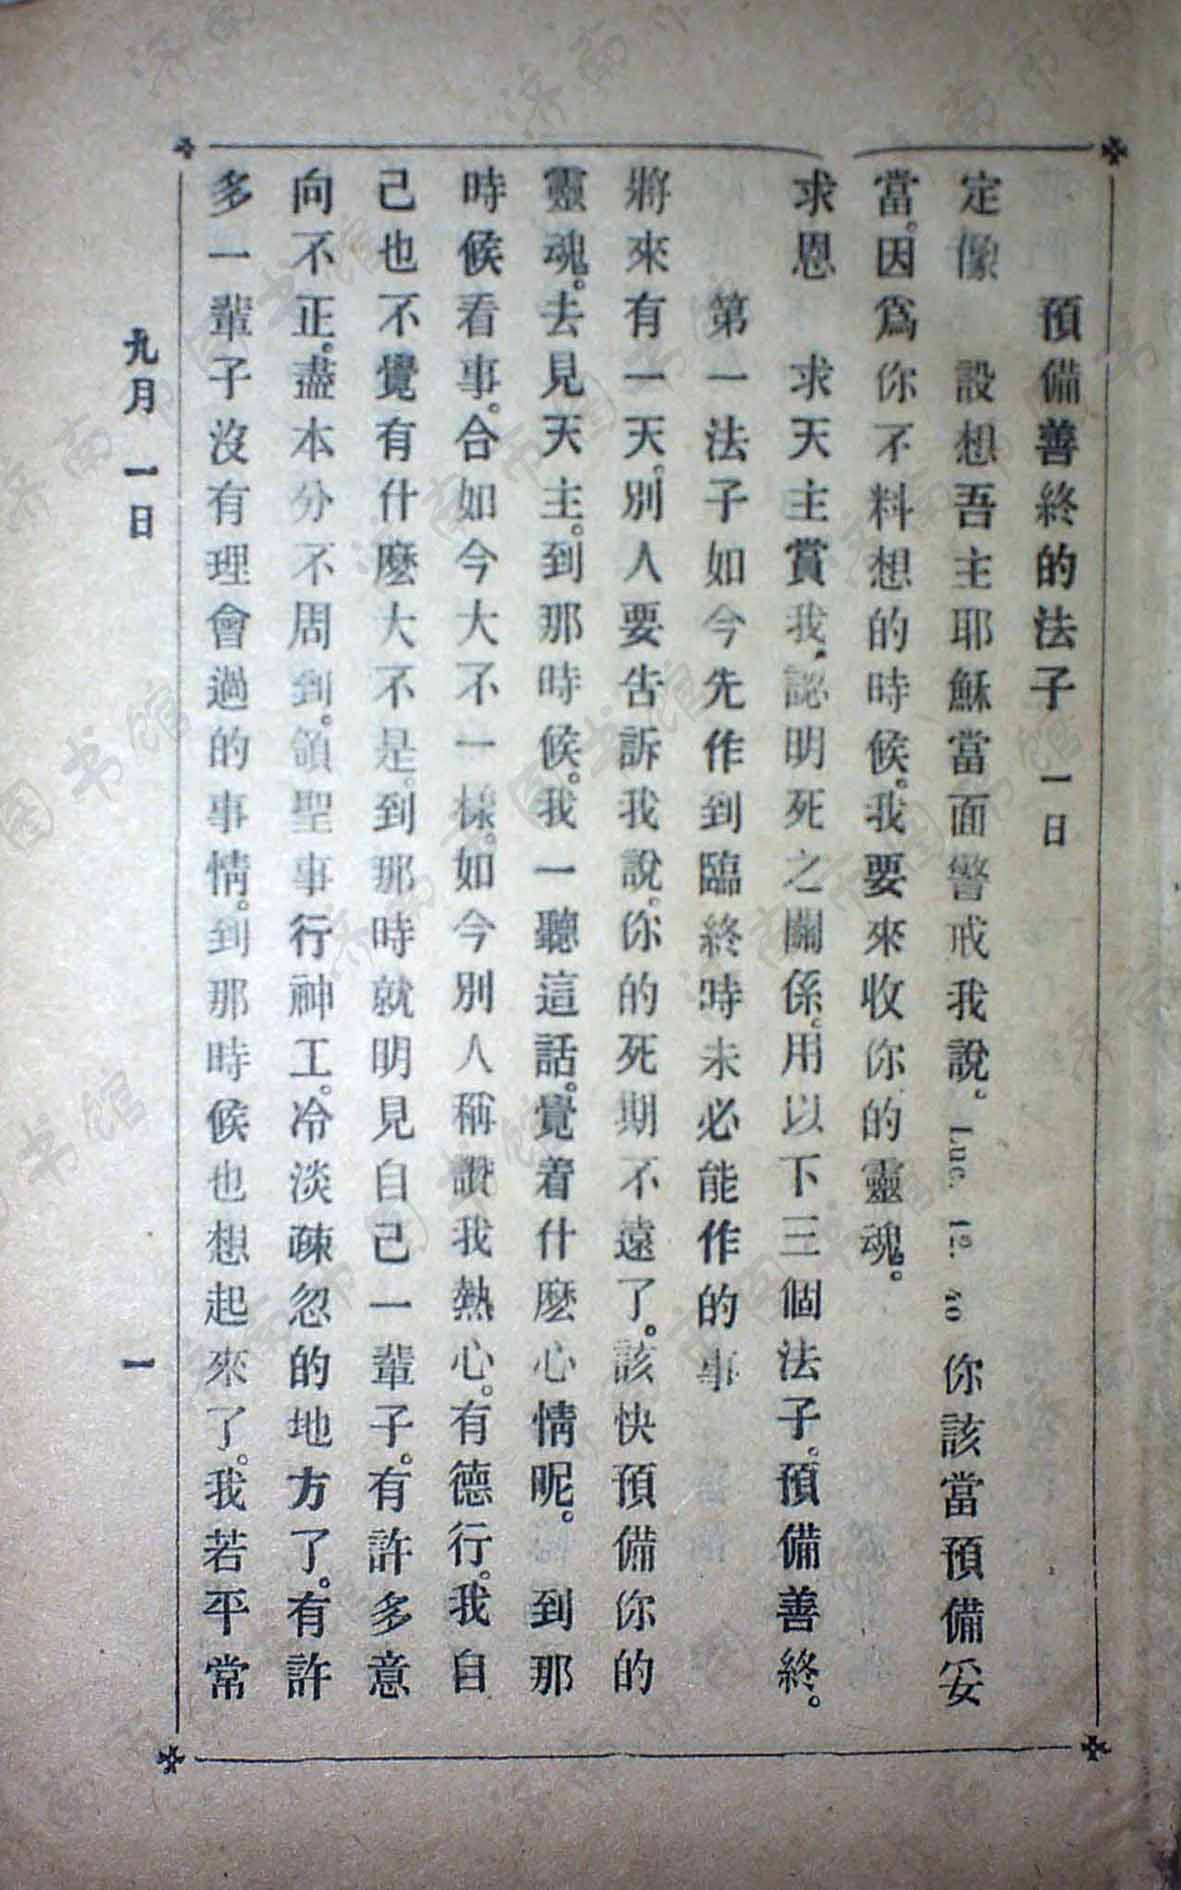 預備善終的法子 一日
定像 設想吾主耶穌當面警戒我說。Luc. 12. 40 你該當預備妥
當。因爲你不料想的時候。我要來收你的靈魂。
求恩 求天主賞我、認明死之關係。用以下三個法子。預備善終。
第一法子如今先作到臨終時未必能作的事
將來有一天。別人要告訴我說。你的死期不遠了。該快預備你的
靈魂。去見天主。到那時候。我一聽這話。覺着什麽心情呢。 到那
時候看事。合如今大不一樣。如今別人稱讚我熱心。有德行。我自
己也不覺有什麽大不是。到那時就明見自己一輩子。有許多意
向不正。盡本分不周到。領聖事行神工。冷淡疎忽的地方了。有許
多一輩子沒有理會過的事情。到那時候也想起來了。我若平常
九月 一日 一